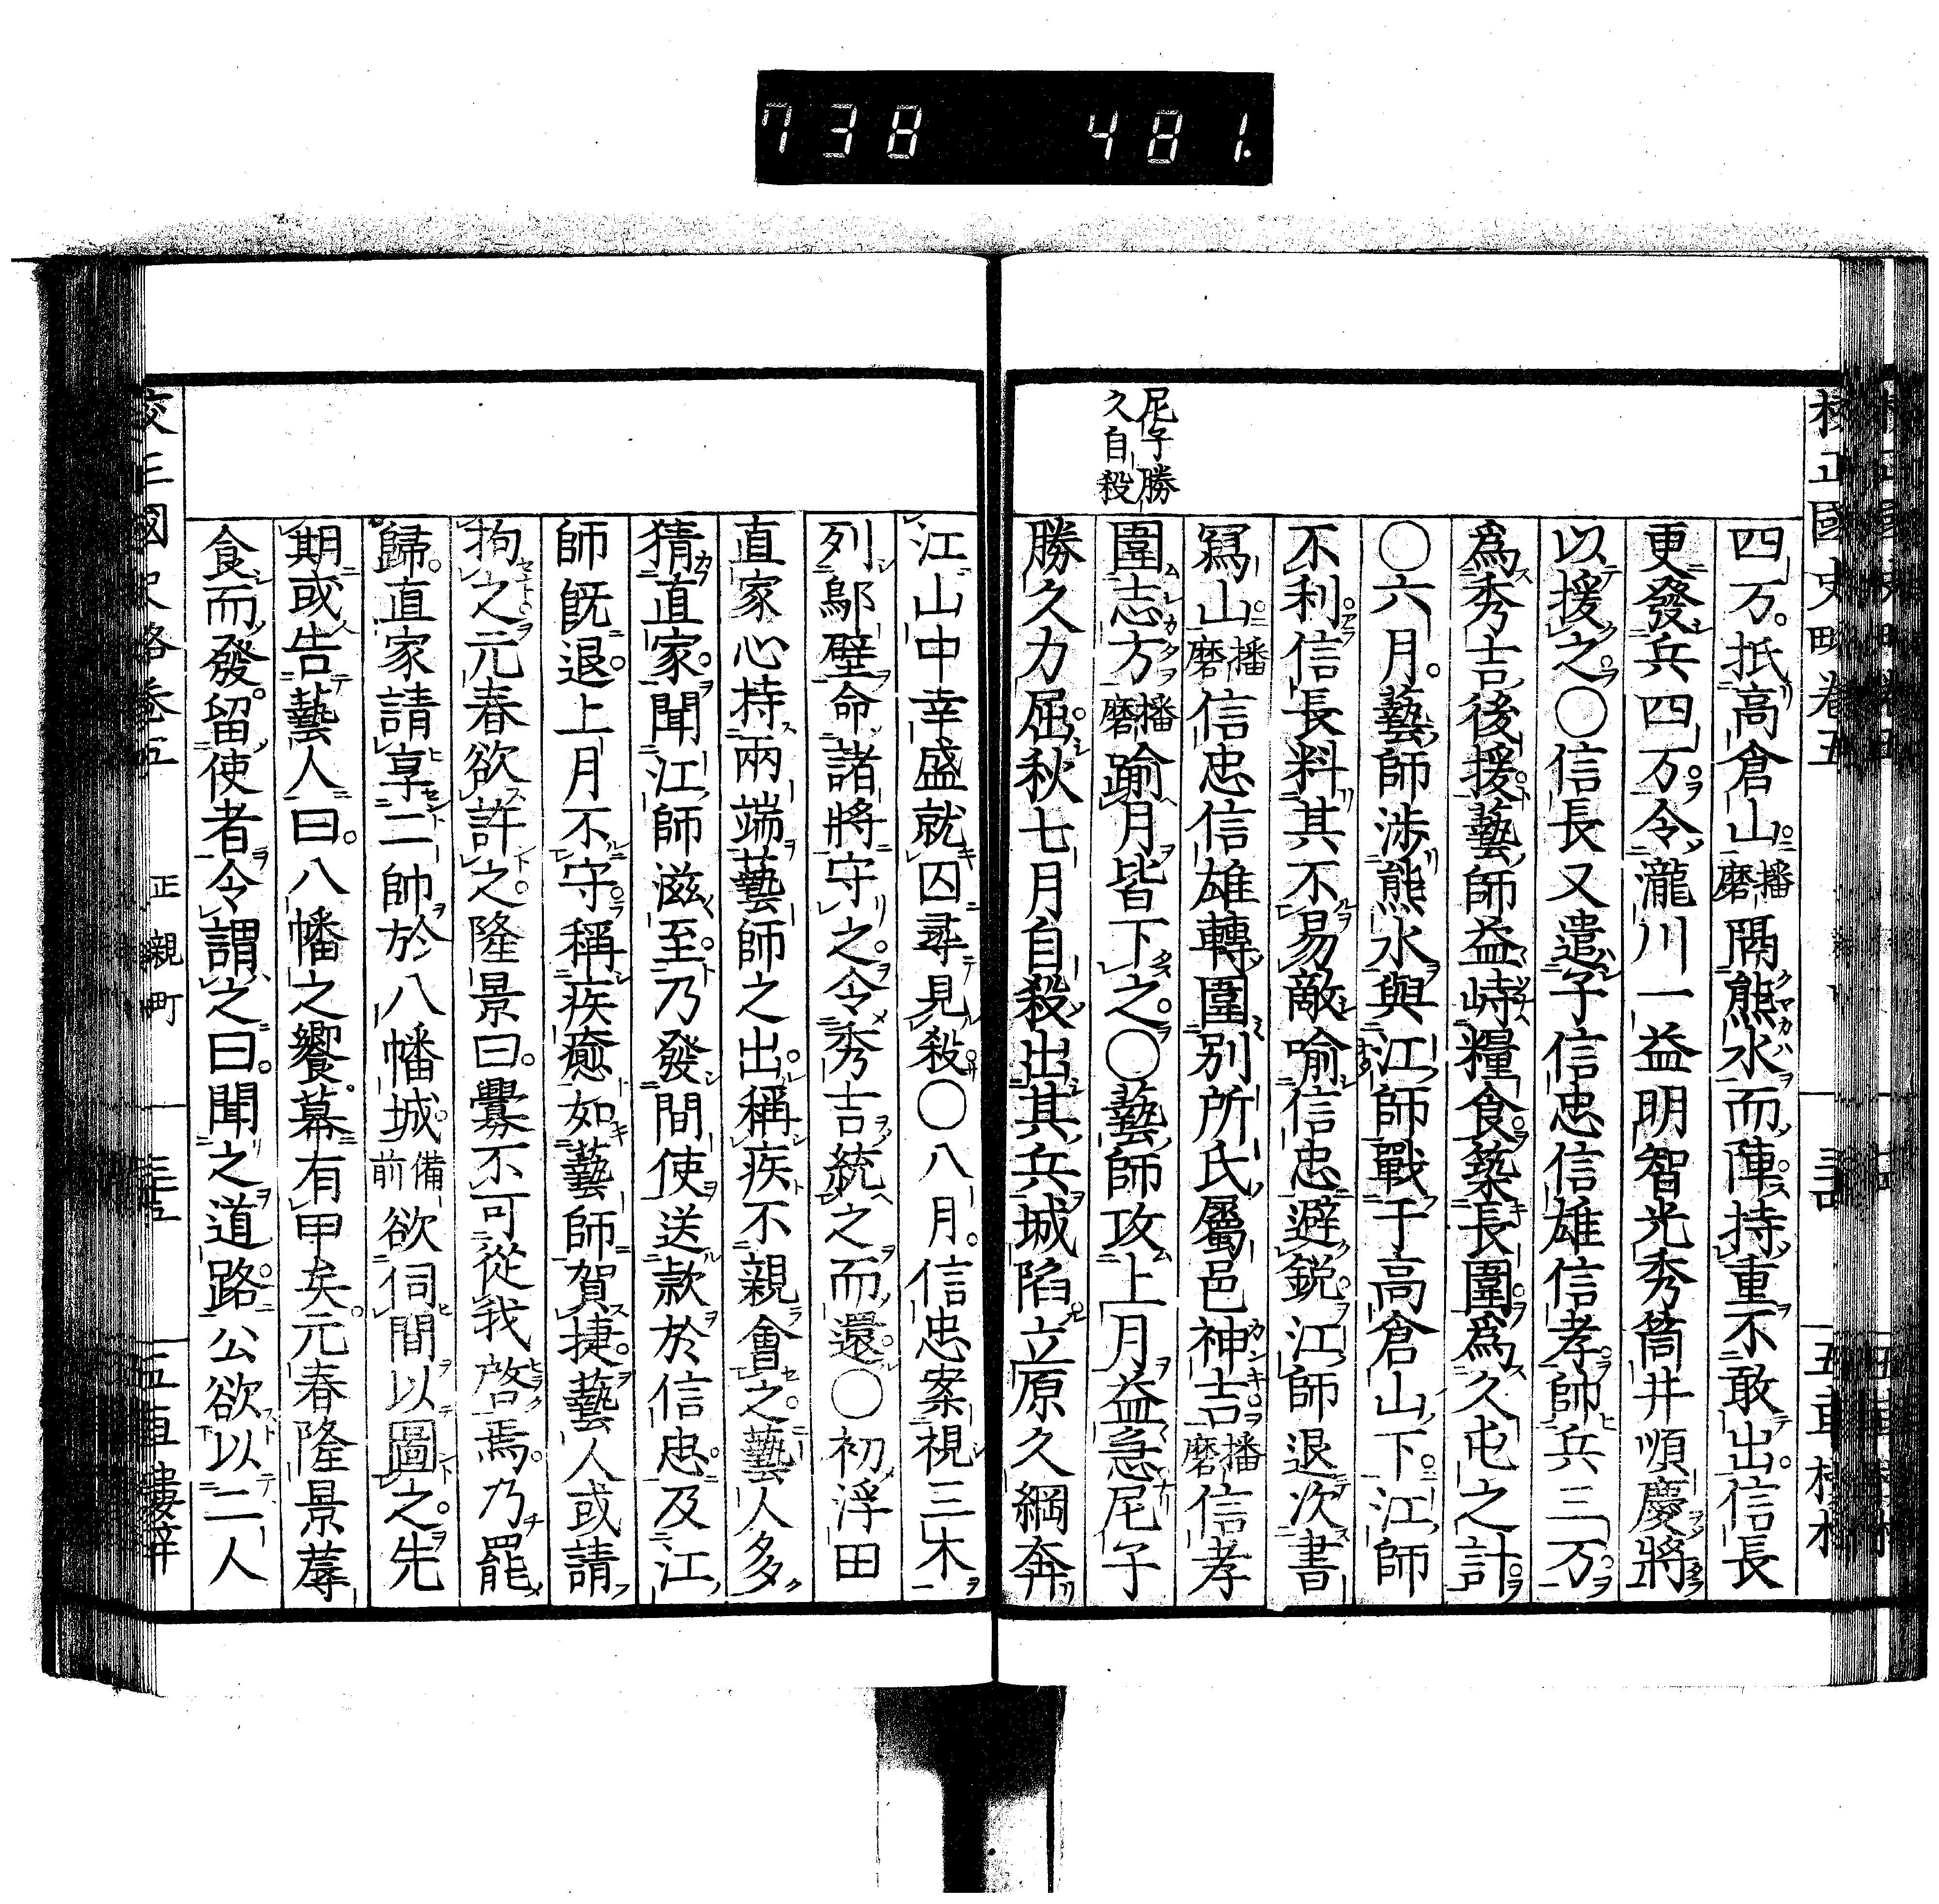 738 481.
四万抵高倉山播磨隔熊水而陣持重不敢出信長
更發兵四万令瀧川一益明智光秀筒井順慶將
以援之〇信長又遣子信忠信雄信孝帥兵三万
爲秀吉後援藝師益峙糧食築長圍爲久屯之計
〇六月藝師渉熊水與江師戰于高倉山下江師
不利信長料其不易敵喻信忠避鋭江師退次書
冩山播磨信忠信雄轉圍別所氏屬邑神吉播磨信孝
尼子勝
久自殺
圍志方播磨踰月皆下之〇藝師攻上月益急尼子
勝久力屈秋七月自殺出其兵城陷立原久綱奔
江山中幸盛就囚尋見殺〇八月信忠案視三木
列鄔壁命諸將守之令秀吉統之而還〇初浮田
直家心持兩端藝師之出稱疾不親會之藝人多
猜直家聞江師滋至乃發間使送款於信忠及江
師既退上月不守稱疾癒如藝師賀捷藝人或請
拘之元春欲許之隆景曰釁不可從我啓焉乃罷
歸直家請享二帥於八幡城備前欲伺間以圖之先
期或告藝人曰八幡之饗幕有甲矣元春隆景蓐
食而發留使者令謂之曰聞之道路公欲以二人
正親町